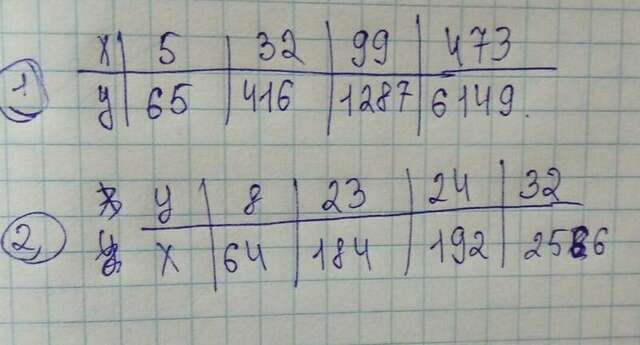 x 5 32 99 473
1
y 65 416 1287 6149.
y 8 23 24 32
2
x 64 184 192 256